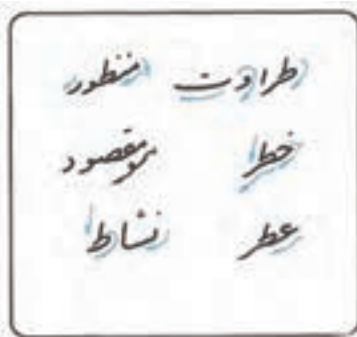 طراوت منظور
خطر مقصود
عطر نشاط